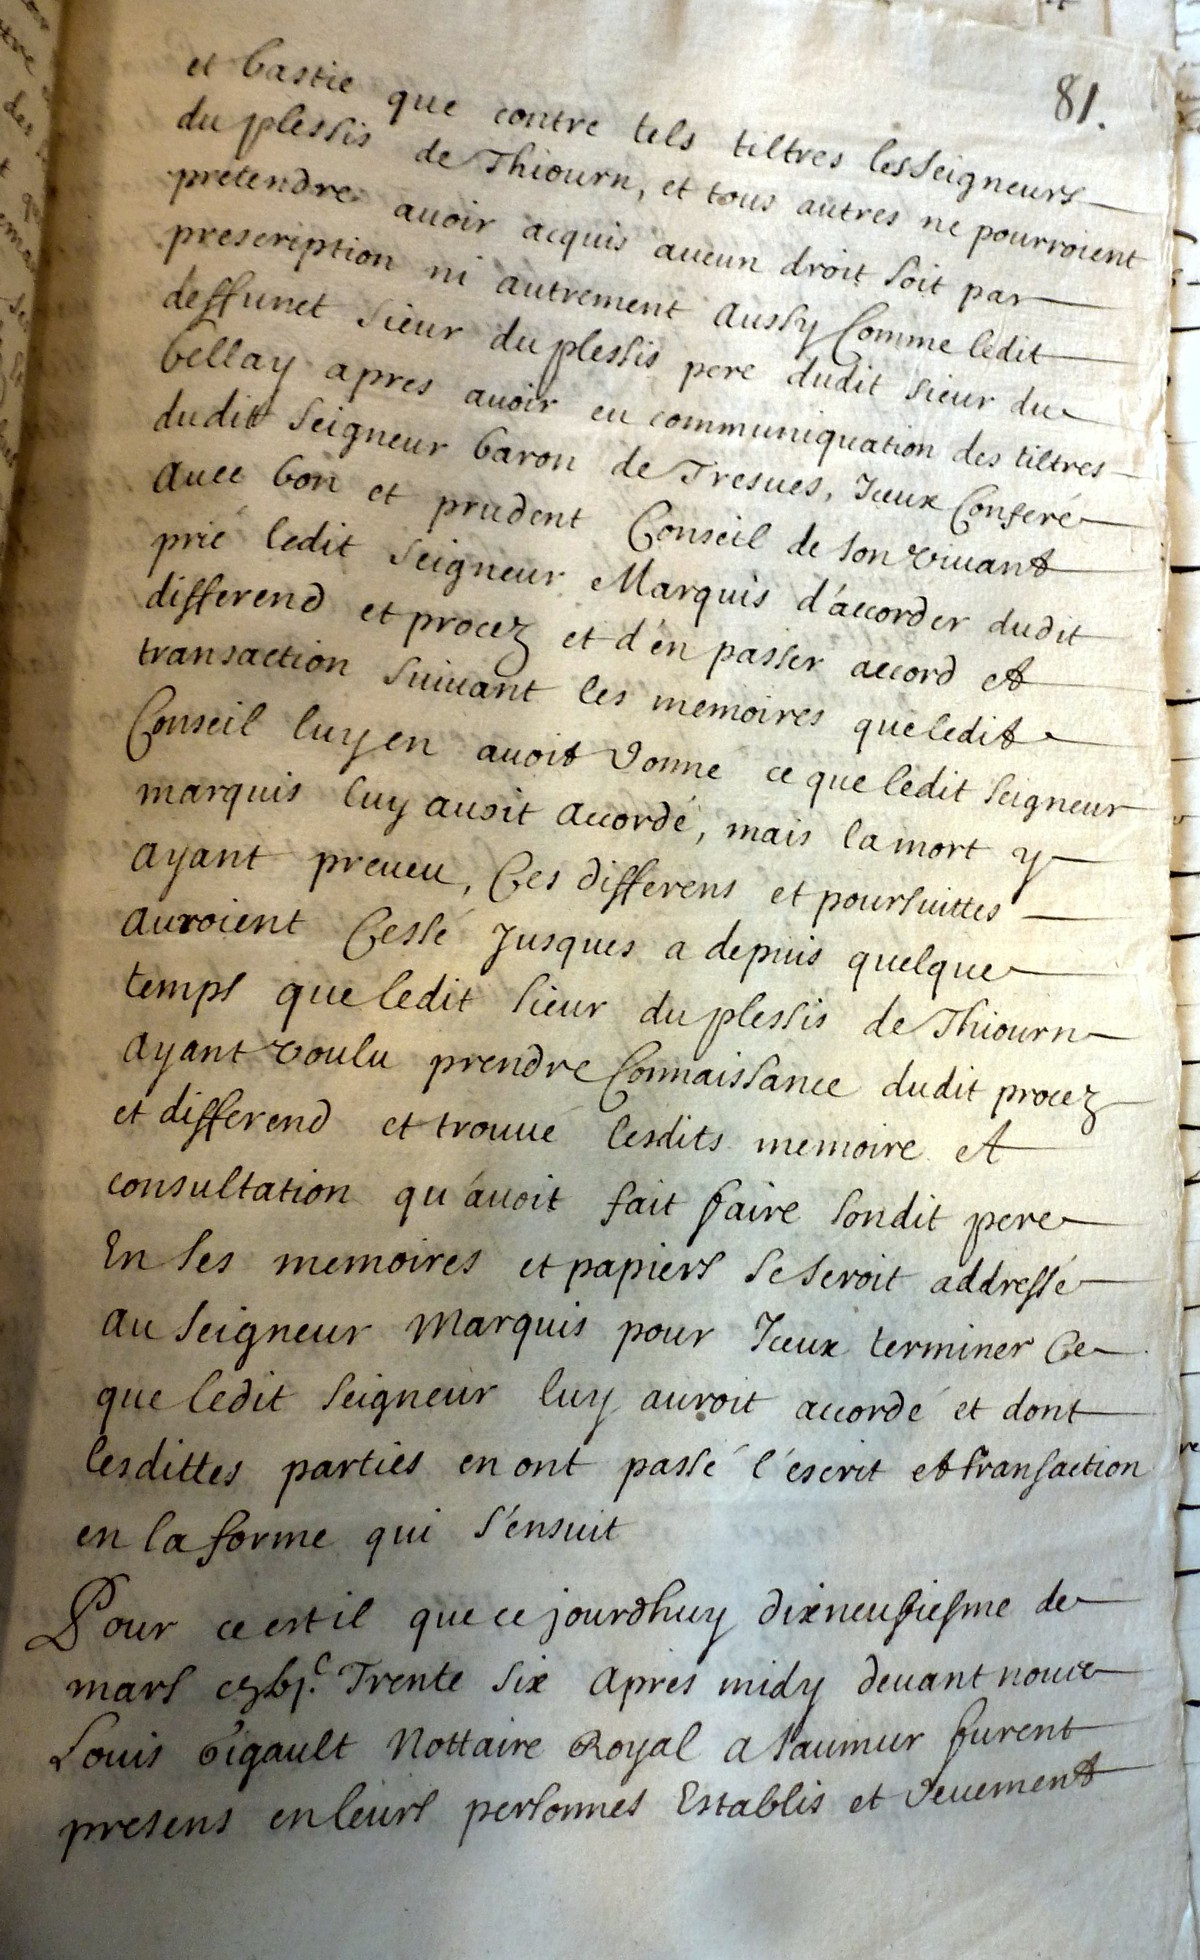 81.
et bastie que contre tels tiltres les Seigneurs
du plessis de Thiourn, et tous autres ne pourroient
pretendre auoir acquis aucun droit soit par
prescription ni autrement Aussy Comme ledit
deffunct sieur du plessis pere dudit sieur du
bellay apres auoir eu communiquation des tiltres
dudit Seigneur baron de Tresues, Iceux Conferé
auec bon et prudent Conseil de son viuant
prié ledit Seigneur Marquis d'accorder dudit
differend et procez et d'en passer accord et
transaction suiuant les memoires que ledit
Conseil luy en auoit donne ce que ledit Seigneur
marquis luy auoit accordé, mais la mort y
ayant preueu, Ces differens et poursuittes
auroient Cessé Jusques a depuis quelque
temps que ledit sieur du plessis de Thiourn
ayant voulu prendre Connaissance dudit procez
et differend et trouué lesdits memoire et
consultation qu'auoit fait faire sondit pere
En ses memoires et papiers se seroit addressé
au Seigneur Marquis pour Iceux terminer Ce
que ledit Seigneur luy auroit accordé et dont
lesdittes parties en ont passé l'escrit et transaction
en la forme qui s'ensuit
Pour ce est il que ce jourdhuy dixneufiesme de
mars Trente six Apres midy deuant nous
Louis Nottaire Royal a Saumur furent
presens en leurs personnes Establis et deuement